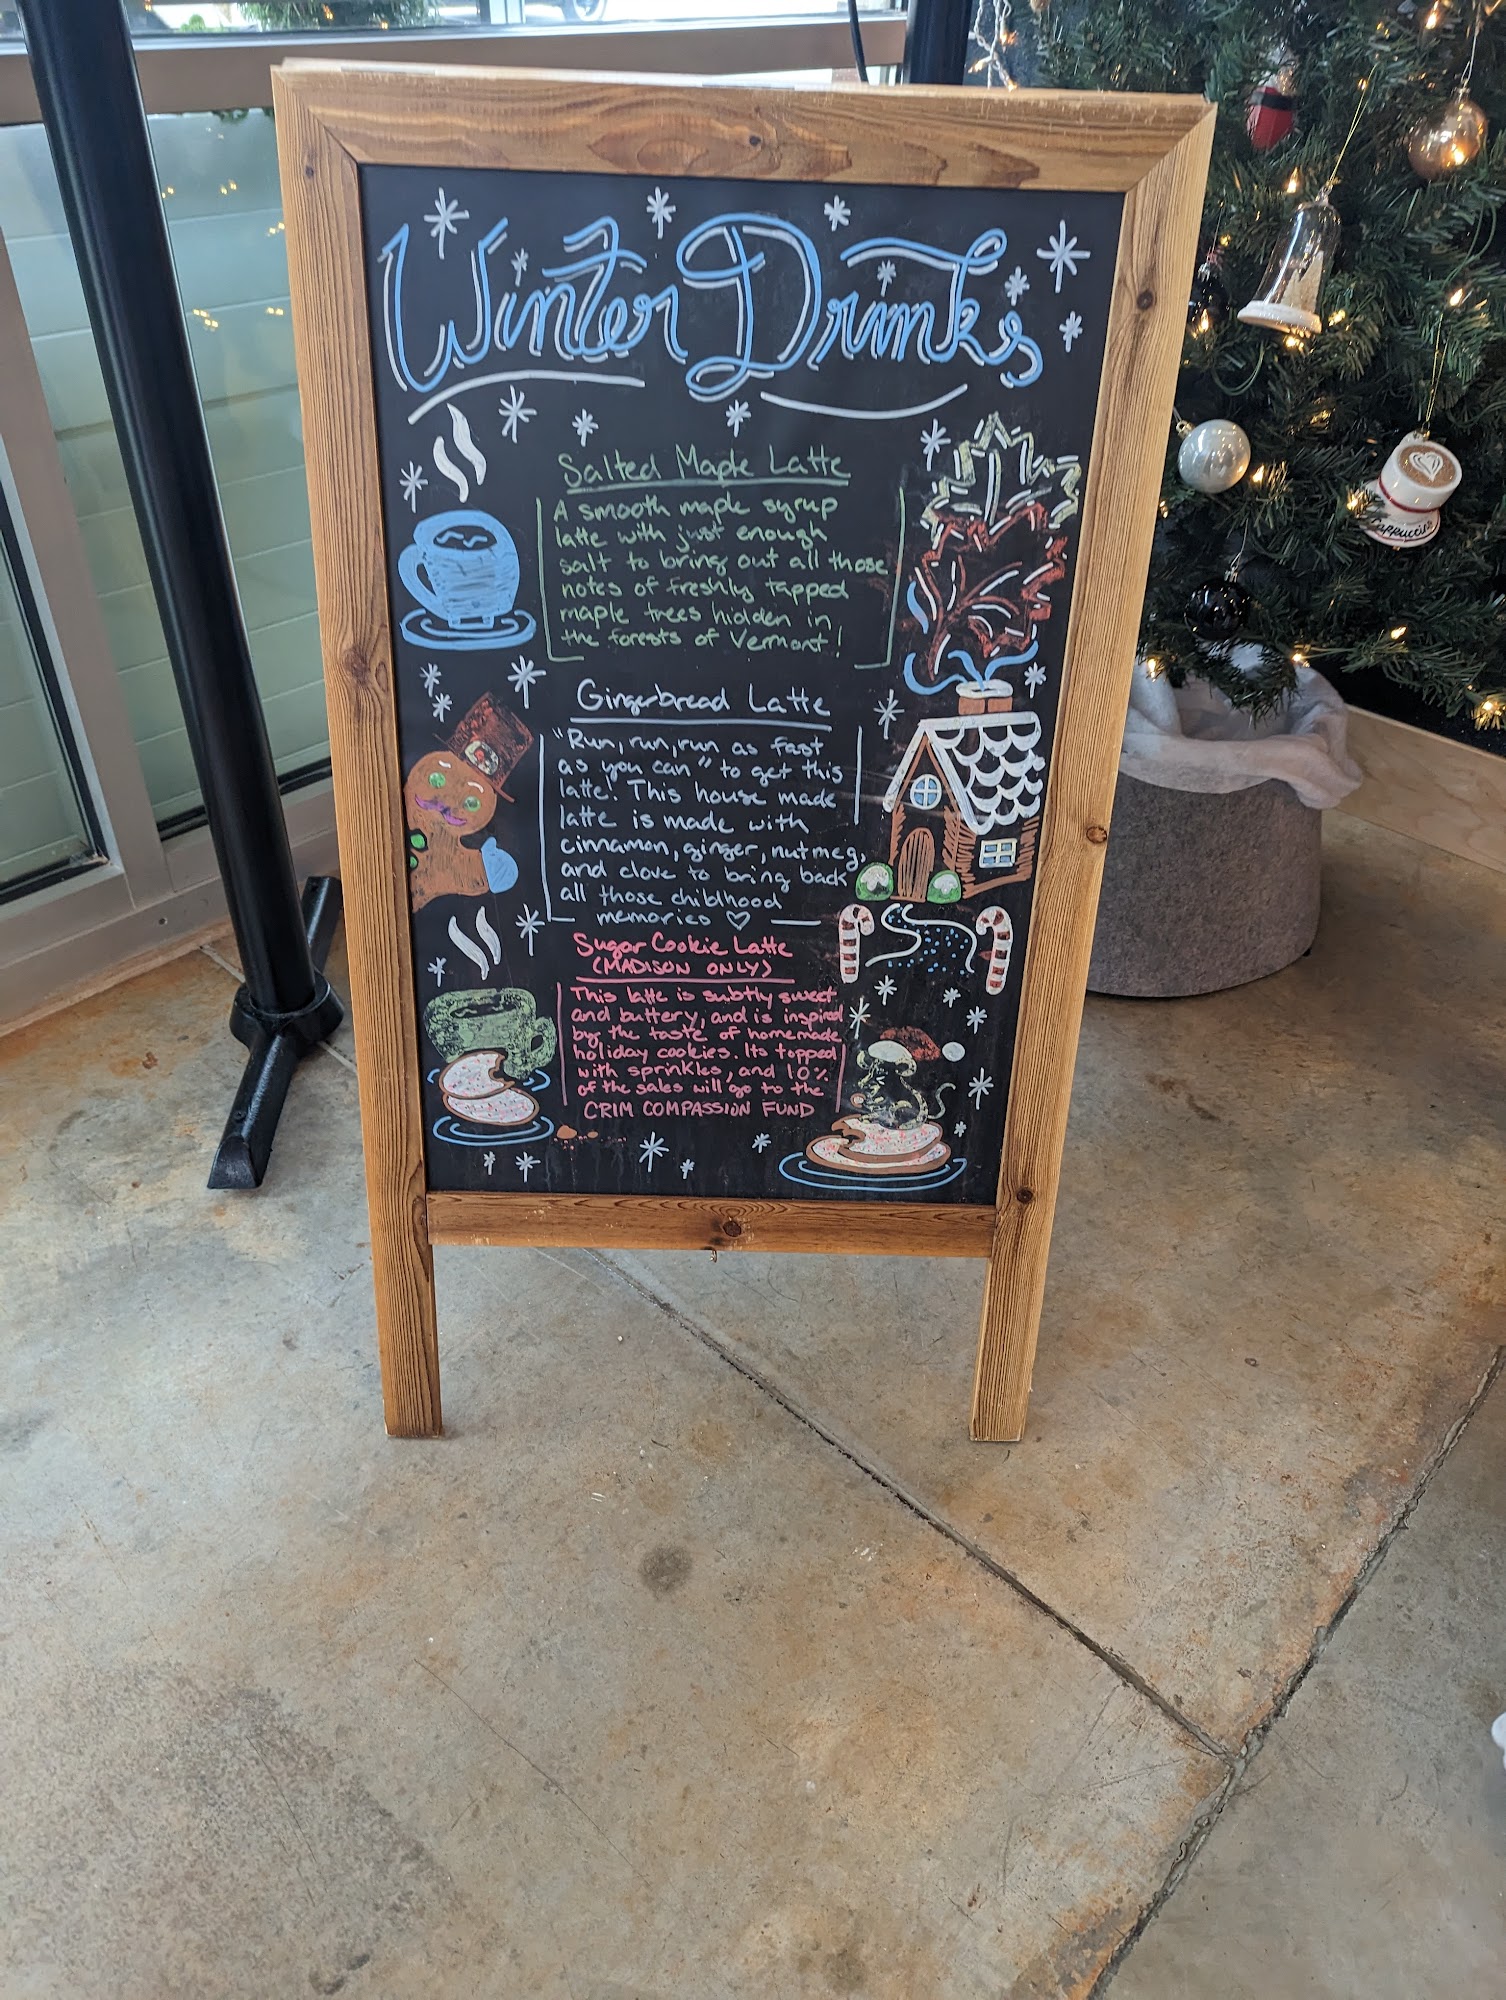 Winter Drinks
Salted Maple Latte
A smooth maple syrup
latte with just enough
salt to bring out all those
notes of freshly tapped
maple trees hidden in
the forests of Vermont!
Gingerbread Latte
"Run, run, run as fast
as you can" to get this
latte! This house made
latte is made with
cinnamon, ginger, nutmeg,
and clove to bring back
all those childhood
memories ♡
Sugar Cookie Latte
(MADISON ONLY)
This latte is subtly sweet
and buttery, and is inspired
by the taste of homemade
holiday cookies. Its topped
with sprinkles, and 10%
of the sales will go to the
CRIM COMPASSION FUND
Cappuccino